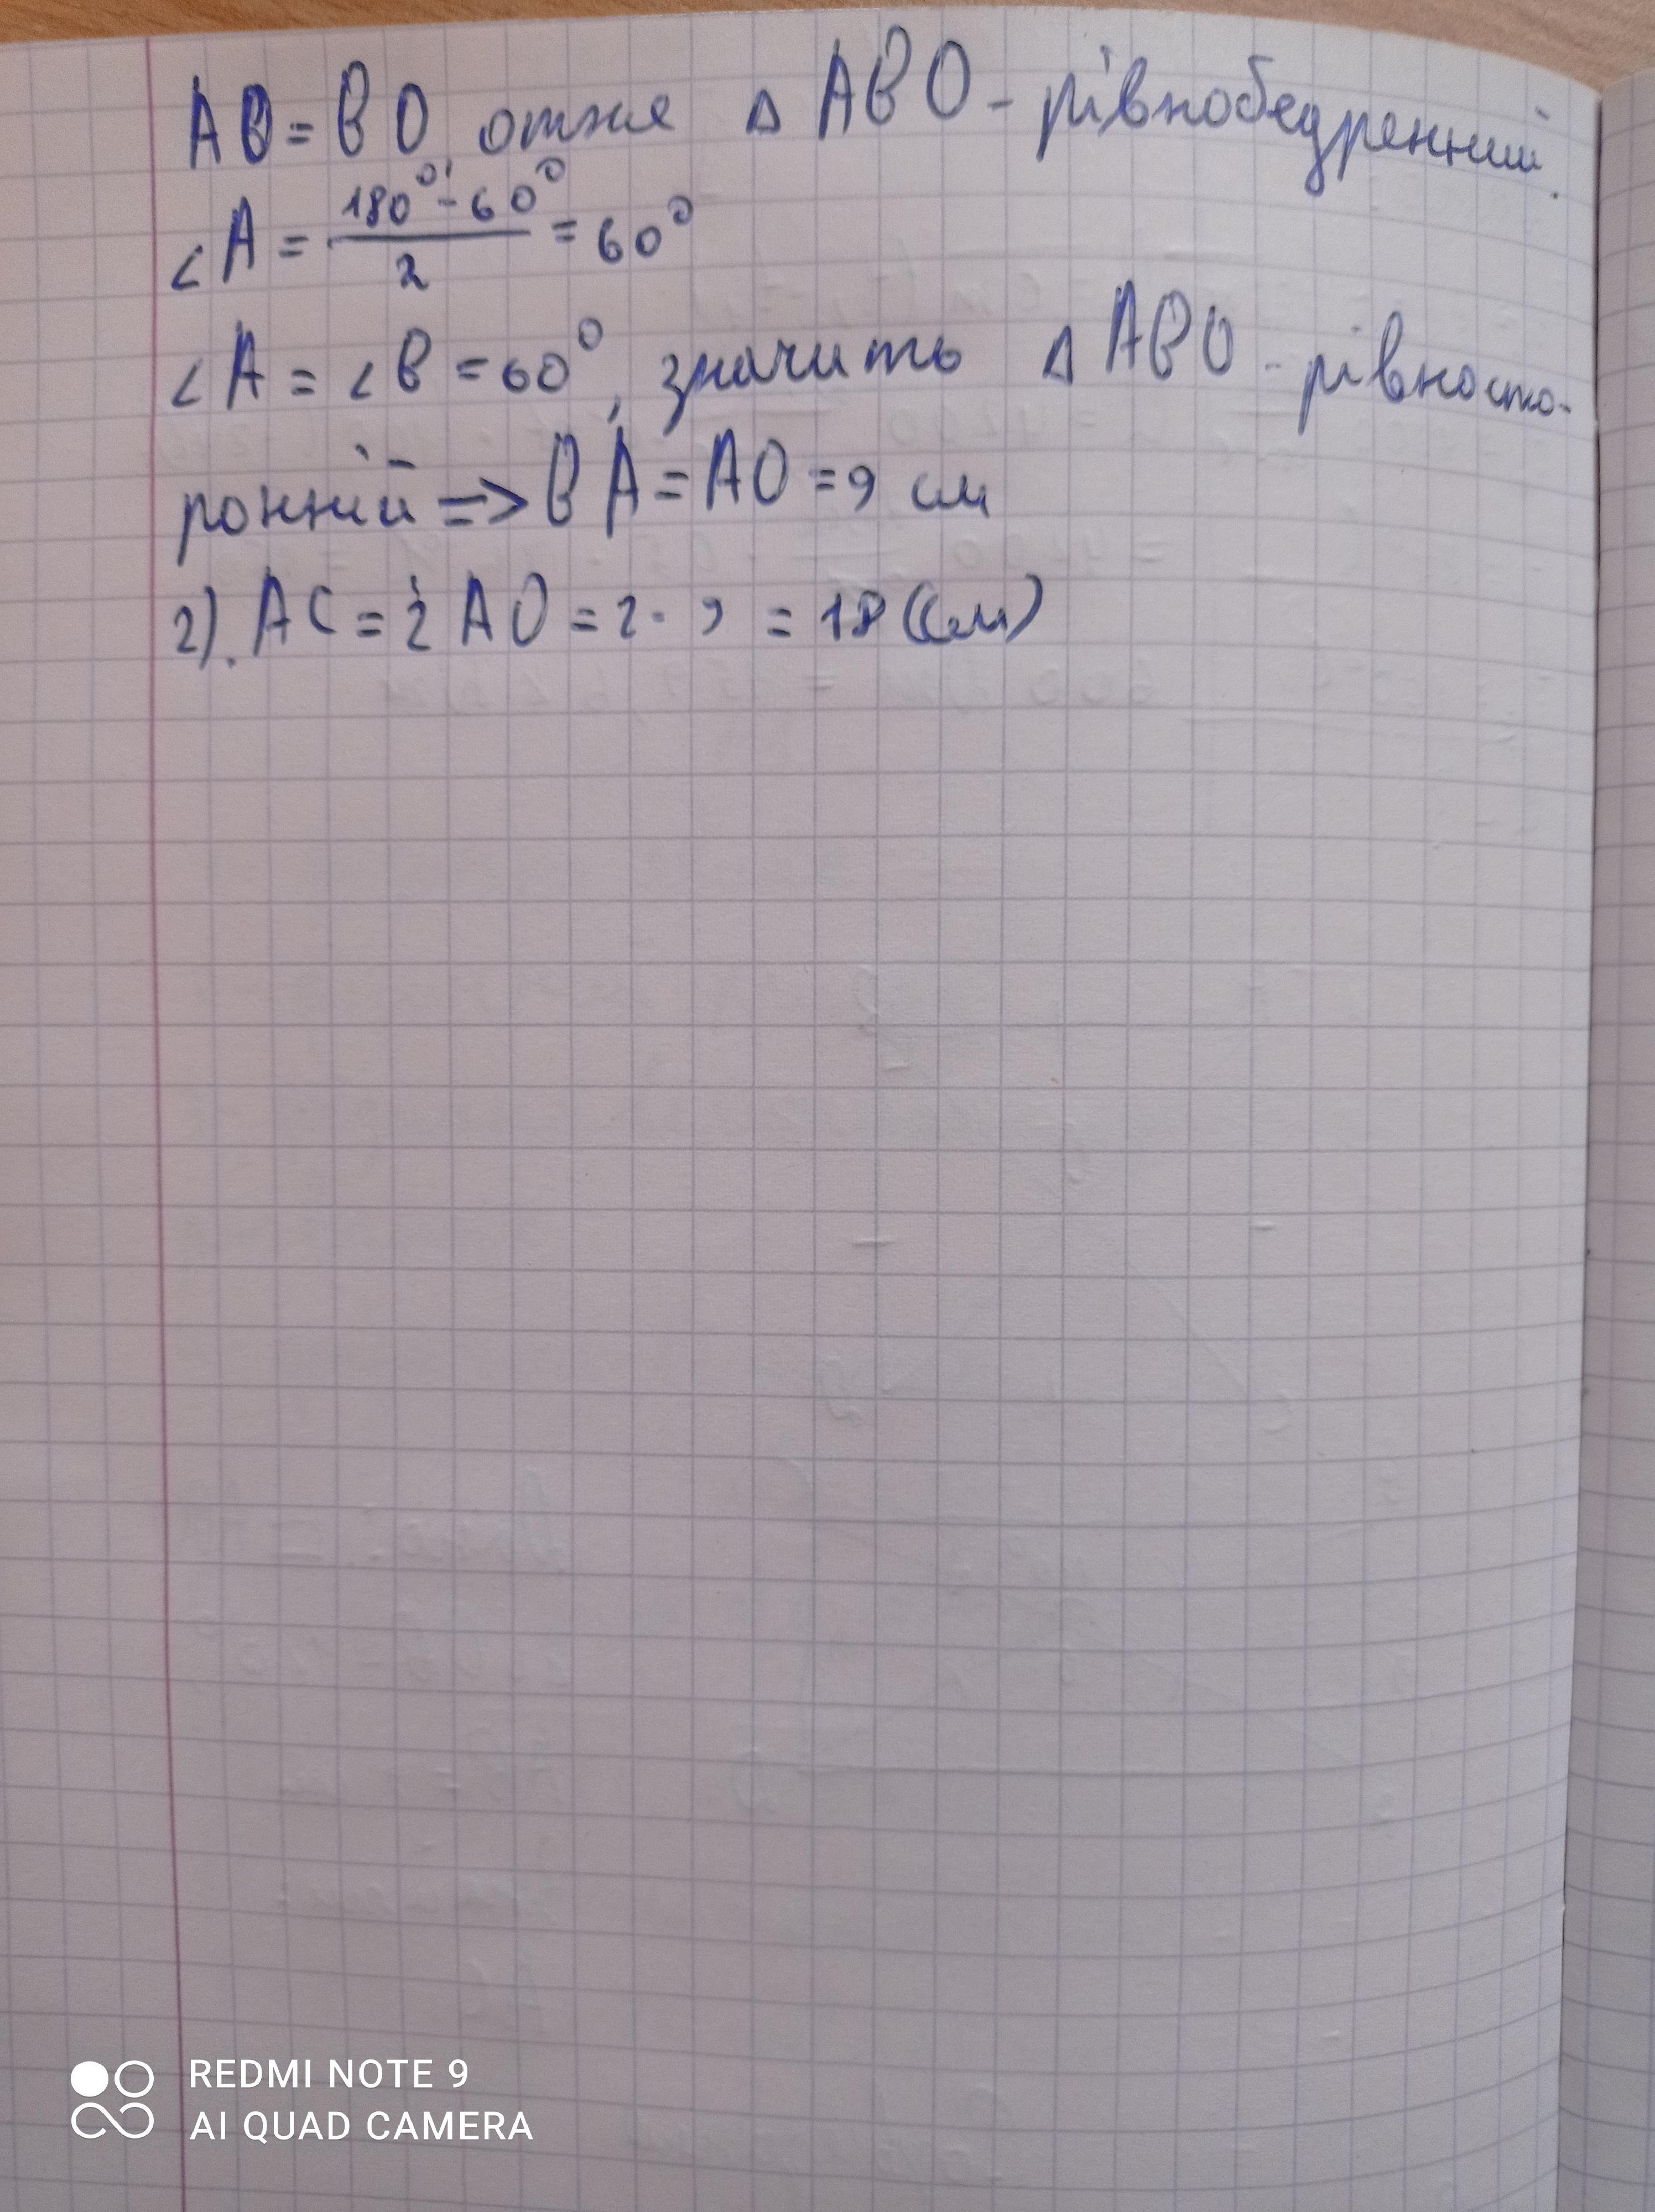 AO = BO, отже △ ABO - рівнобедренний.
∠A = (180° - 60°)/2 = 60°
∠A = ∠B = 60°, значить △ ABO - рівносто-
ронній => BA = AO = 9 см
2). AC = 2 AO = 2 · 9 = 18 (см)
REDMI NOTE 9
AI QUAD CAMERA